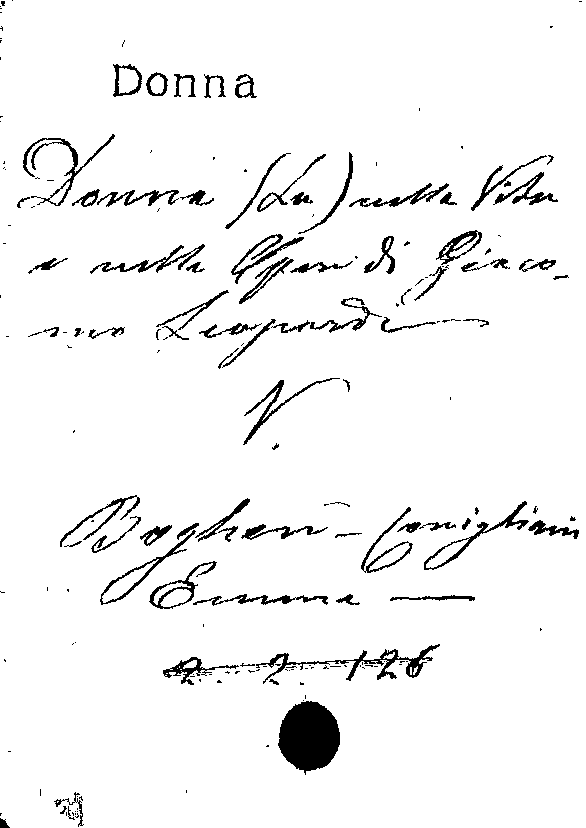 Donna
Donna (La) nella Vita
e nelle Opere di Giaco-
mo Leopardi
V.
Boghen-Conigliani
Emma
2. 2. 126